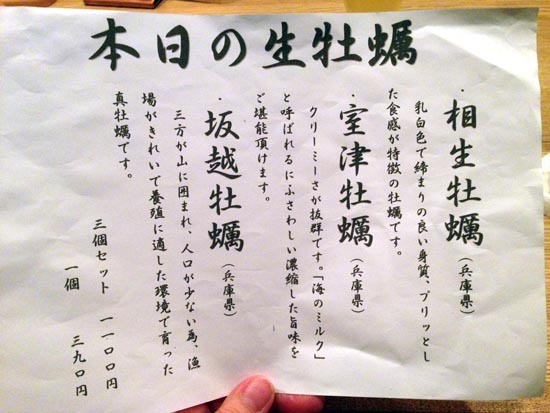 本日の生牡蠣
・相生牡蠣（兵庫県）
乳白色で締まりの良い身質、プリッとし
た食感が特徴の牡蠣です。
・室津牡蠣（兵庫県）
クリーミーさが抜群です。「海のミルク」
と呼ばれるにふさわしい濃縮した旨味を
ご堪能頂けます。
・坂越牡蠣（兵庫県）
三方が山に囲まれ、人口が少ない為、漁
場がきれいで養殖に適した環境で育った
真牡蠣です。
三個セット 一一〇〇円
一個 三九〇円